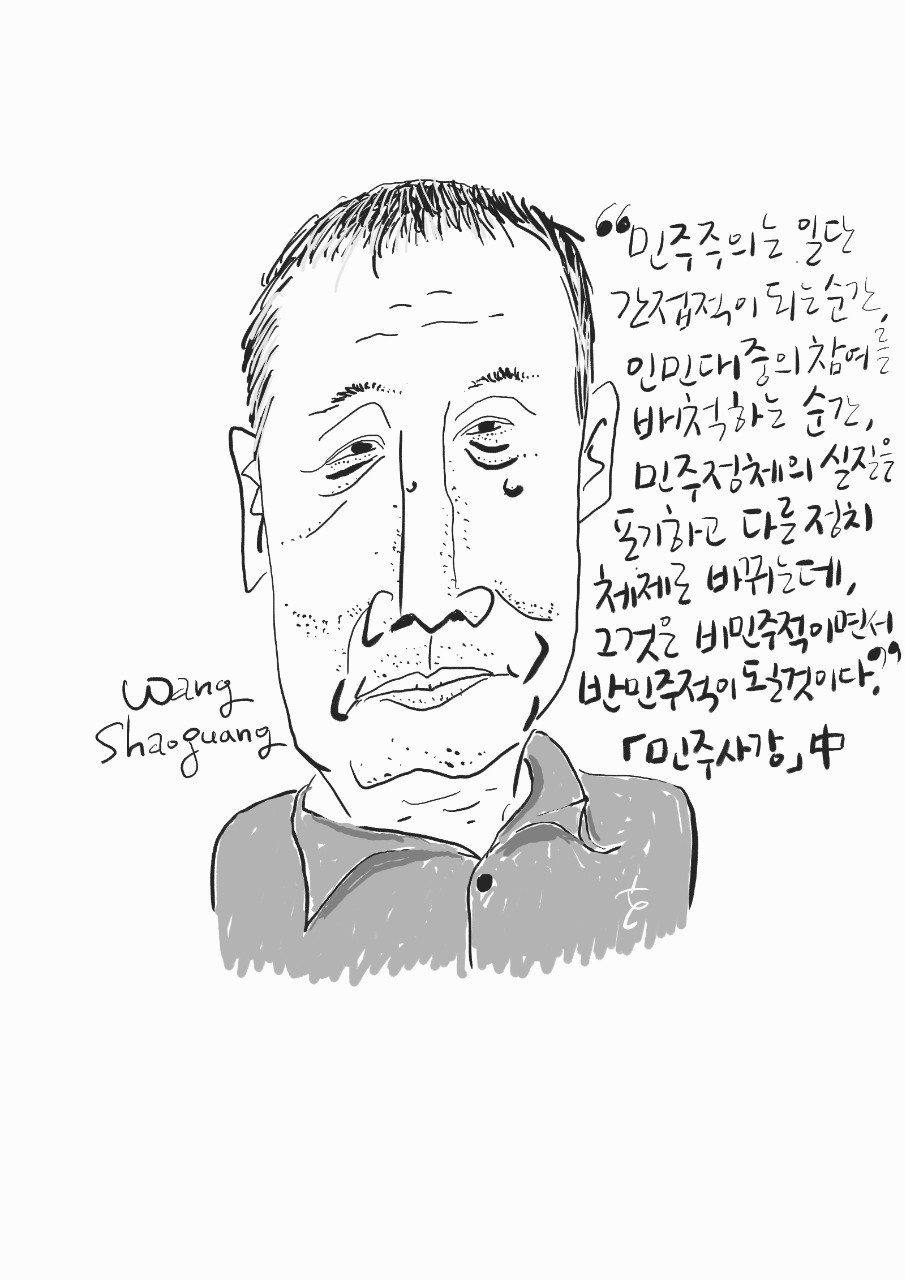 “민주주의는 일단
간접적이 되는 순간,
인민대중의 참여를
배척하는 순간,
민주정체의 실질을
포기하고 다른 정치
체제로 바뀌는데,
그것은 비민주적이면서
반민주적이 될것이다.”
「민주사강」中
Wang
Shaoguang